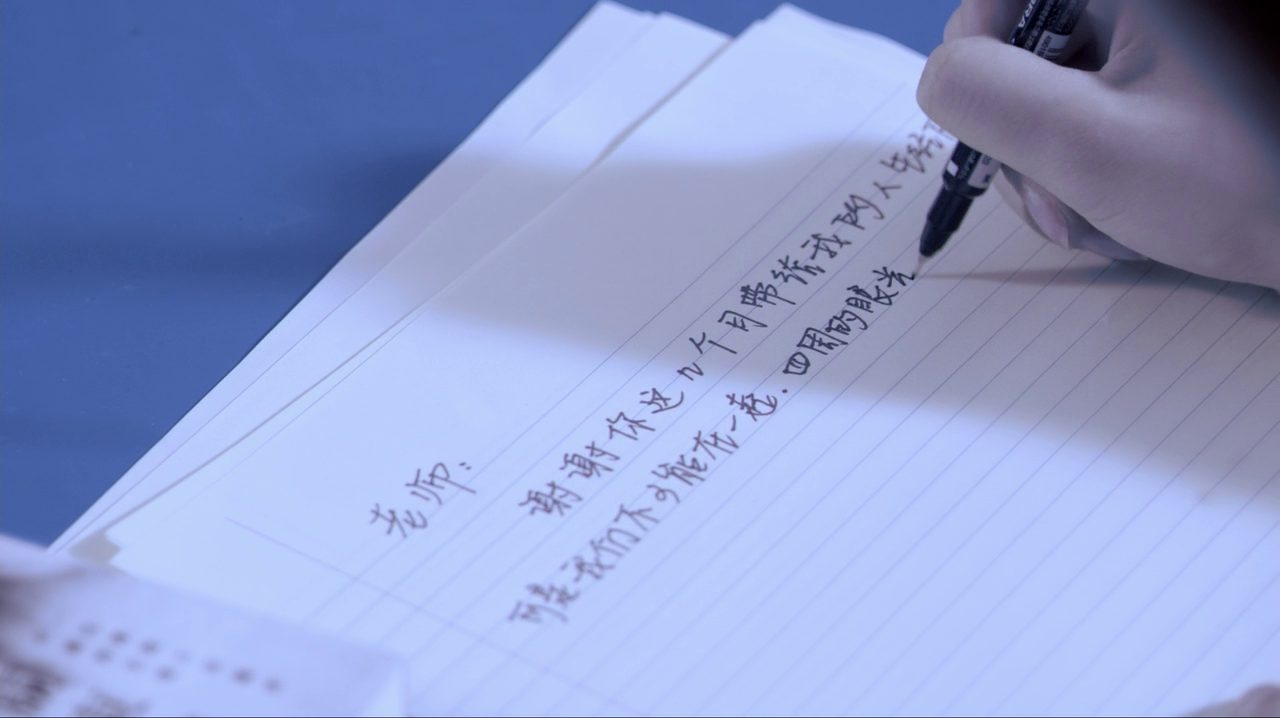 老师:
谢谢你这几个月带给我的人生
可是我们不可能在一起.四周的眼光